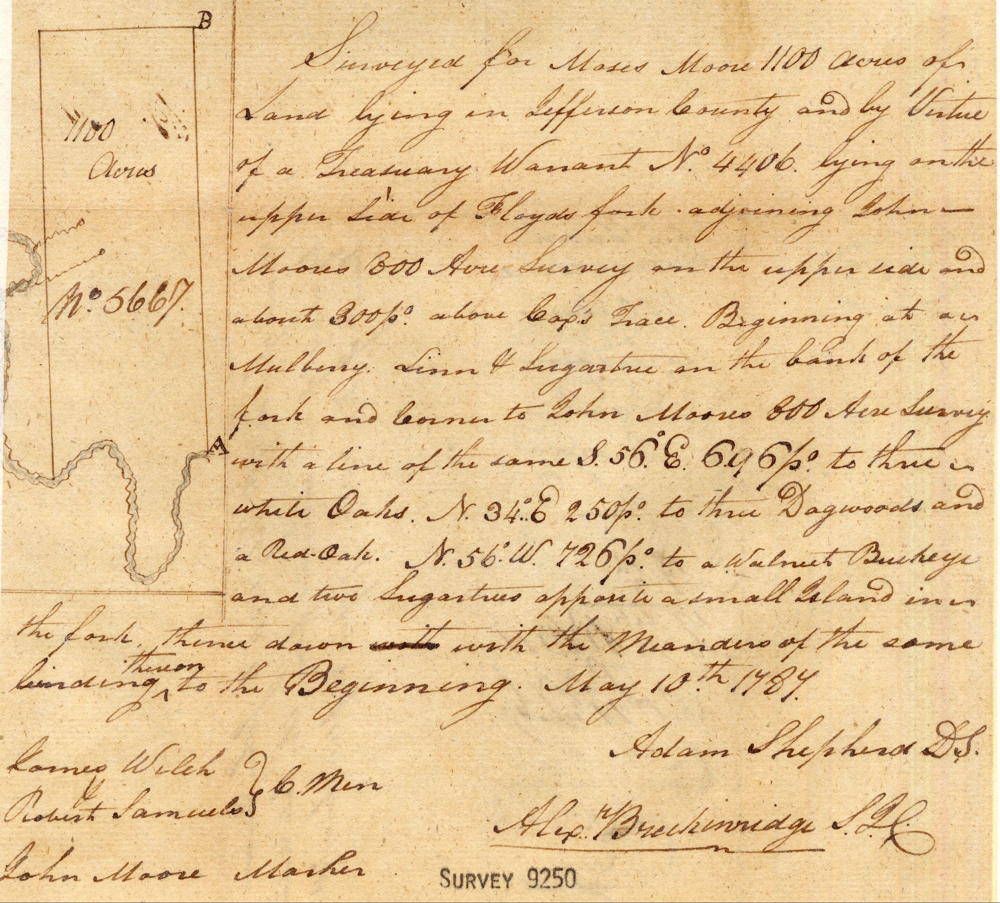 B
1100
Acres
No 5667.
A
Surveyed for Moses Moore 1100 Acres of
Land lying in Jefferson County and by Virtue
of a Treasuary Warrant No 4406. lying on the
upper Side of Floyds fork adjoining John
Moores 800 Acre Survey on the upper side and
about 300po. above Cox's Trace. Beginning at a
Mulberry. Linn & Sugartree on the bank of the
fork and Corner to John Moores 800 Acre Survey
with a line of the same S. 56° E. 696po. to three
white Oaks. N. 34° E 250po. to three Dogwoods and
a Red-Oak. N. 56° W. 726po. to a Walnut Buckeye
and two Sugartrees opposite a small Island in
the fork, thence down with with the Meanders of the same
binding thereon to the Beginning. May 10th 1787.
Adam Shepherd DS.
James Welch
& } C. Men
Robert Samuels
Alexr. Breckinridge S.J.C.
John Moore Marker
SURVEY 9250